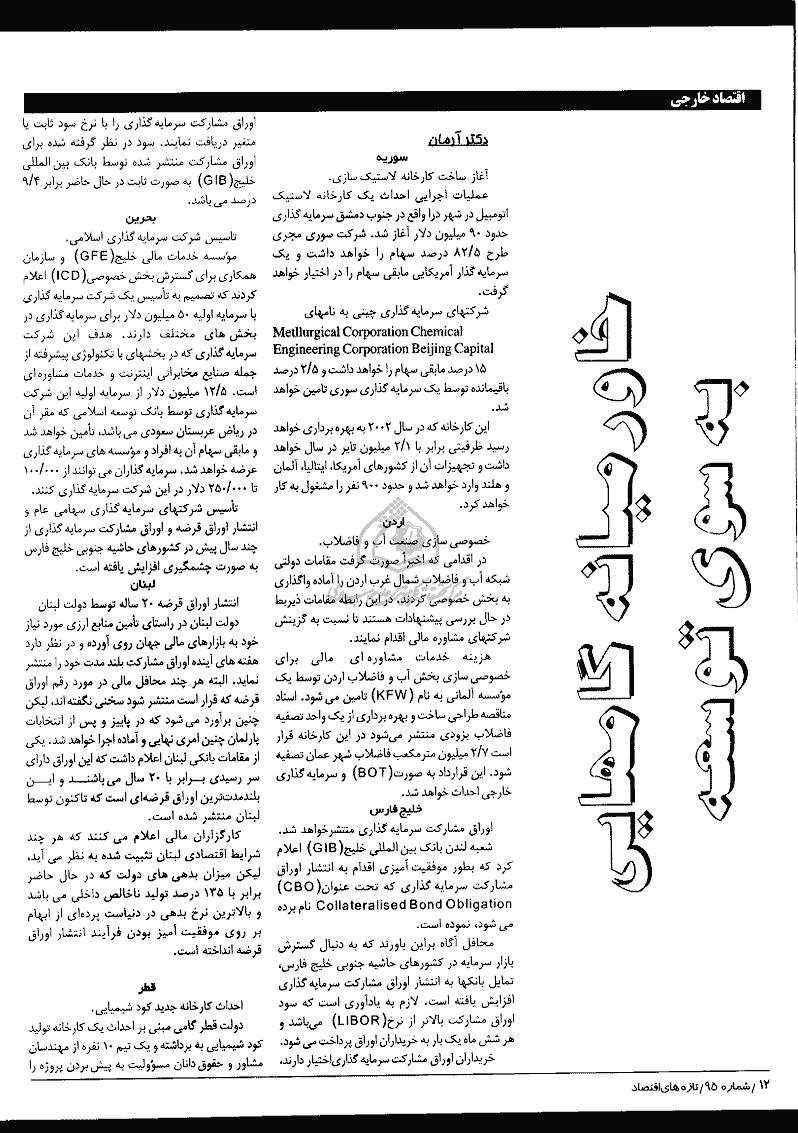 اقتصاد خارجی
خاورمیانه گامهایی
به سوی توسعه
دکتر آرمان
سوریه
آغاز ساخت کارخانه لاستیک سازی.
عملیات اجرایی احداث یک کارخانه لاستیک
اتومبیل در شهر درا واقع در جنوب دمشق سرمایه گذاری
حدود ۹۰ میلیون دلار آغاز شد. شرکت سوری مجری
طرح ۸۲/۵ درصد سهام را خواهد داشت و یک
سرمایه گذار آمریکایی مابقی سهام را در اختیار خواهد
گرفت.
شرکتهای سرمایه گذاری چینی به نامهای
Metllurgical Corporation Chemical
Engineering Corporation Beijing Capital
۱۵ درصد مابقی سهام را خواهد داشت و ۲/۵ درصد
باقیمانده توسط یک سرمایه گذاری سوری تامین خواهد
شد.
این کارخانه که در سال ۲۰۰۲ به بهره برداری خواهد
رسید ظرفیتی برابر با ۲/۱ میلیون تایر در سال خواهد
داشت و تجهیزات آن از کشورهای آمریکا، ایتالیا، آلمان
و هلند وارد خواهد شد و حدود ۹۰۰ نفر را مشغول به کار
خواهد کرد.
اردن
خصوصی سازی صنعت آب و فاضلاب.
در اقدامی که اخیراً صورت گرفت مقامات دولتی
شبکه آب و فاضلاب شمال غرب اردن را آماده واگذاری
به بخش خصوصی کردند. در این رابطه مقامات ذیربط
در حال بررسی پیشنهادات هستند تا نسبت به گزینش
شرکتهای مشاوره مالی اقدام نمایند.
هزینه خدمات مشاوره ای مالی برای
خصوصی سازی بخش آب و فاضلاب اردن توسط یک
مؤسسه آلمانی به نام (KFW) تامین می شود. اسناد
مناقصه طراحی ساخت و بهره برداری از یک واحد تصفیه
فاضلاب بزودی منتشر می‌شود در این کارخانه قرار
است ۲/۷ میلیون مترمکعب فاضلاب شهر عمان تصفیه
شود. این قرارداد به صورت(BOT) و سرمایه گذاری
خارجی احداث خواهد شد.
خلیج فارس
اوراق مشارکت سرمایه گذاری منتشرخواهد شد.
شعبه لندن بانک بین المللی خلیج(GIB) اعلام
کرد که بطور موفقیت آمیزی اقدام به انتشار اوراق
مشارکت سرمایه گذاری که تحت عنوان(CBO)
Collateralised Bond Obligation نام برده
می شود، نموده است.
محافل آگاه براین باورند که به دنبال گسترش
بازار سرمایه در کشورهای حاشیه جنوبی خلیج فارس،
تمایل بانکها به انتشار اوراق مشارکت سرمایه گذاری
افزایش یافته است. لازم به یادآوری است که سود
اوراق مشارکت بالاتر از نرخ(LIBOR) می‌باشد و
هر شش ماه یک بار به خریداران اوراق پرداخت می شود.
خریداران اوراق مشارکت سرمایه گذاری‌اختیار دارند،
اوراق مشارکت سرمایه گذاری را با نرخ سود ثابت یا
متغیر دریافت نمایند. سود در نظر گرفته شده برای
اوراق مشارکت منتشر شده توسط بانک بین المللی
خلیج(GIB) به صورت ثابت در حال حاضر برابر ۹/۴
درصد می باشد.
بحرین
تاسیس شرکت سرمایه گذاری اسلامی.
مؤسسه خدمات مالی خلیج(GFE) و سازمان
همکاری برای گسترش بخش خصوصی(ICD) اعلام
کردند که تصمیم به تأسیس یک شرکت سرمایه گذاری
با سرمایه اولیه ۵۰ میلیون دلار برای سرمایه گذاری در
بخش های مختلف دارند. هدف این شرکت
سرمایه گذاری که در بخشهای با تکنولوژی پیشرفته از
جمله صنایع مخابراتی اینترنت و خدمات مشاوره‌ای
است. ۱۲/۵ میلیون دلار از سرمایه اولیه این شرکت
سرمایه گذاری توسط بانک توسعه اسلامی که مقر آن
در ریاض عربستان سعودی می باشد، تأمین خواهد شد
و مابقی سهام آن به افراد و مؤسسه های سرمایه گذاری
عرضه خواهد شد. سرمایه گذاران می توانند از ۱۰۰/۰۰۰
تا ۲۵۰/۰۰۰ دلار در این شرکت سرمایه گذاری کنند.
تأسیس شرکتهای سرمایه گذاری سهامی عام و
انتشار اوراق قرضه و اوراق مشارکت سرمایه گذاری از
چند سال پیش در کشورهای حاشیه جنوبی خلیج فارس
به صورت چشمگیری افزایش یافته است.
لبنان
انتشار اوراق قرضه ۲۰ ساله توسط دولت لبنان
دولت لبنان در راستای تأمین منابع ارزی مورد نیاز
خود به بازارهای مالی جهان روی آورده و در نظر دارد
هفته های آینده اوراق مشارکت بلند مدت خود را منتشر
نماید. البته هر چند محافل مالی در مورد رقم اوراق
قرضه که قرار است منتشر شود سخنی نگفته اند، لیکن
چنین برآورد می شود که در پاییز و پس از انتخابات
پارلمان چنین امری نهایی و آماده اجرا خواهد شد. یکی
از مقامات بانکی لبنان اعلام داشت که این اوراق دارای
سر رسیدی بـرابر با ۲۰ سال می‌باشنـد و ایـن
بلندمدت‌ترین اوراق قرضه‌ای است که تاکنون توسط
لبنان منتشر شده است.
کارگزاران مالی اعلام می کنند که هر چند
شرایط اقتصادی لبنان تثبیت شده به نظر می آید،
لیکن میزان بدهی های دولت که در حال حاضر
برابر با ۱۳۵ درصد تولید ناخالص داخلی می باشد
و بالاترین نرخ بدهی در دنیاست پرده‌ای از ابهام
بر روی موفقیت آمیز بودن فرآیند انتشار اوراق
قرضه انداخته است.
قطر
احداث کارخانه جدید کود شیمیایی.
دولت قطر گامی مبنی بر احداث یک کارخانه تولید
کود شیمیایی به برداشته و یک تیم ۱۰ نفره از مهندسان
مشاور و حقوق دانان مسؤولیت به پیش بردن پروژه را
۱۲ /شماره ۹۵/تازه های اقتصاد